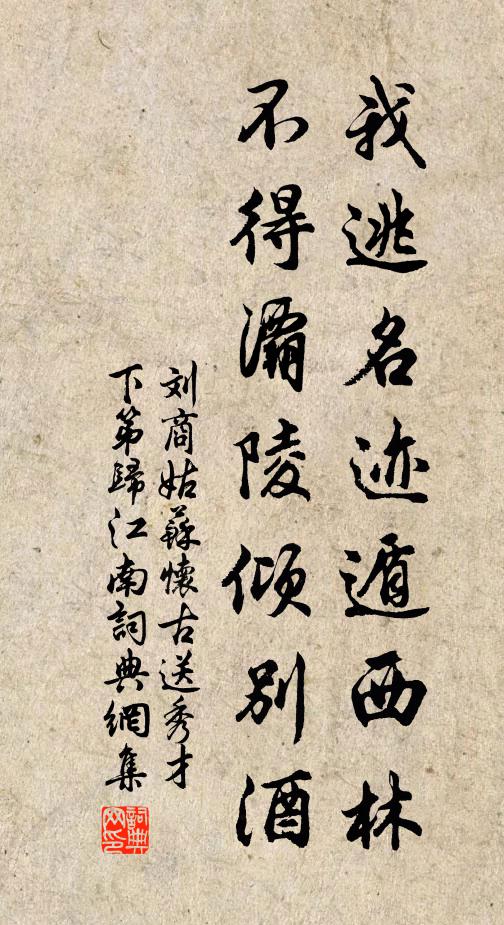 我逃名迹遁西林
不得灞陵倾别酒
刘商姑蘇懷古送秀才
下第歸江南詞典網集
詞典网印